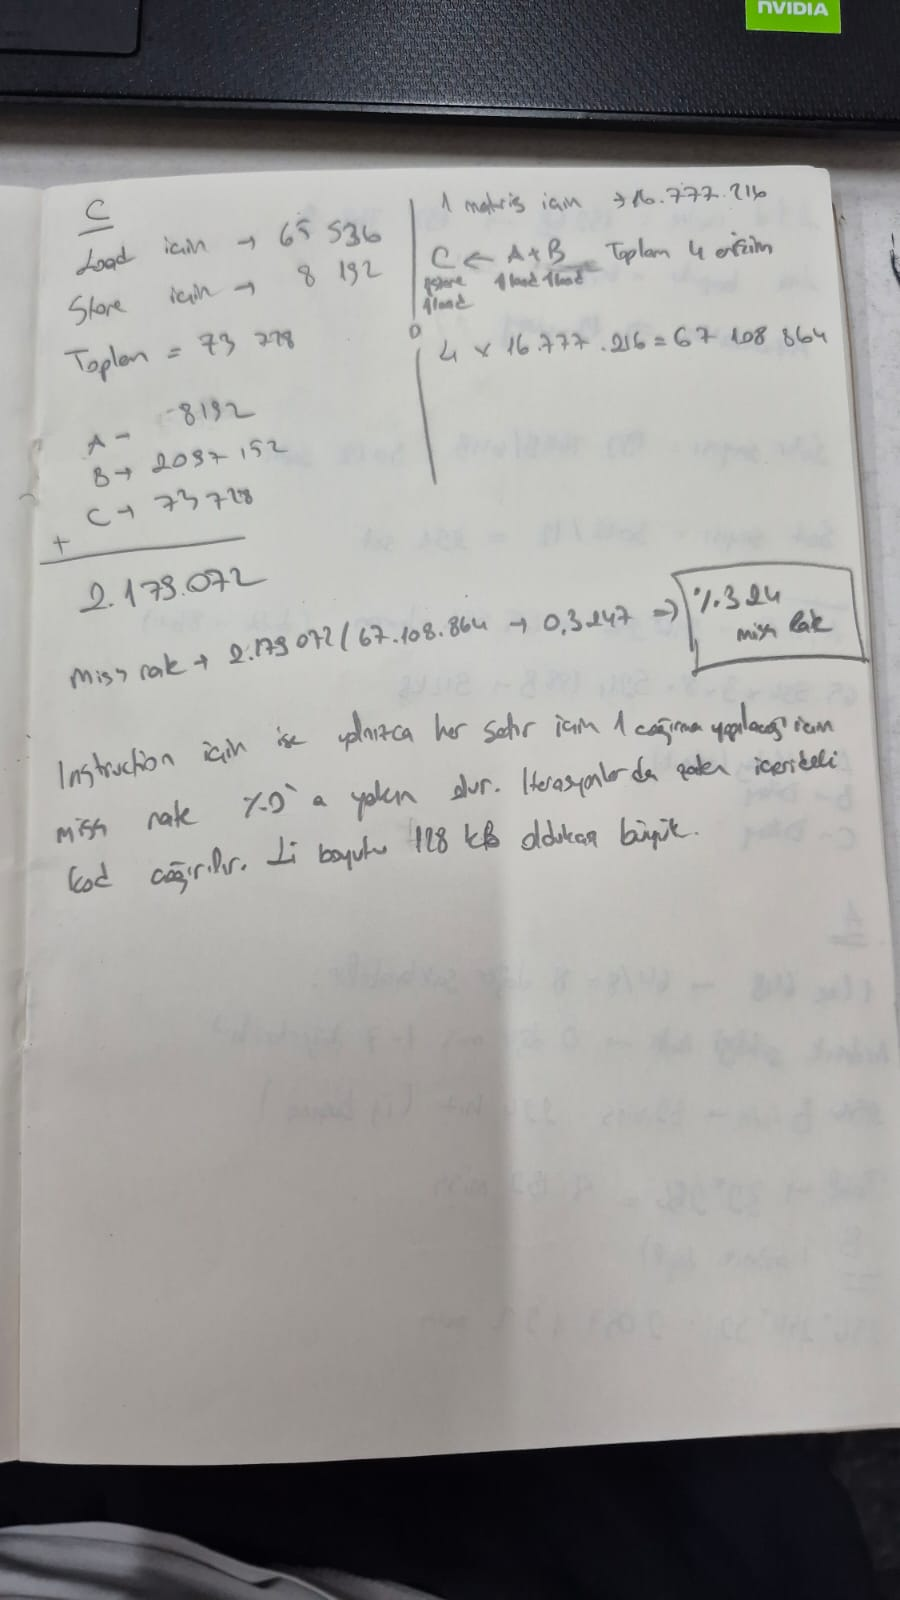 NVIDIA
C
Load için → 65 536
Store için → 8 192
Toplam = 73 728
A → 8192
B → 2097 152
C → 73728
+
2.179.072
1 matris için → 16.777.216
C ← A + B Toplam 4 erişim
1store 1load 1load
1load
4 x 16.777.216 = 67 108 864
Miss rate → 2.179 072 / 67.108.864 → 0,3247 => %3.24
miss rate
Instruction için ise yalnızca her satır için 1 çağırma yapılacağı için
miss rate %0'a yakın olur. Iterasyonlarda zaten içerideki
kod çağırılır. Li boyutu 128 kB oldukça büyük.